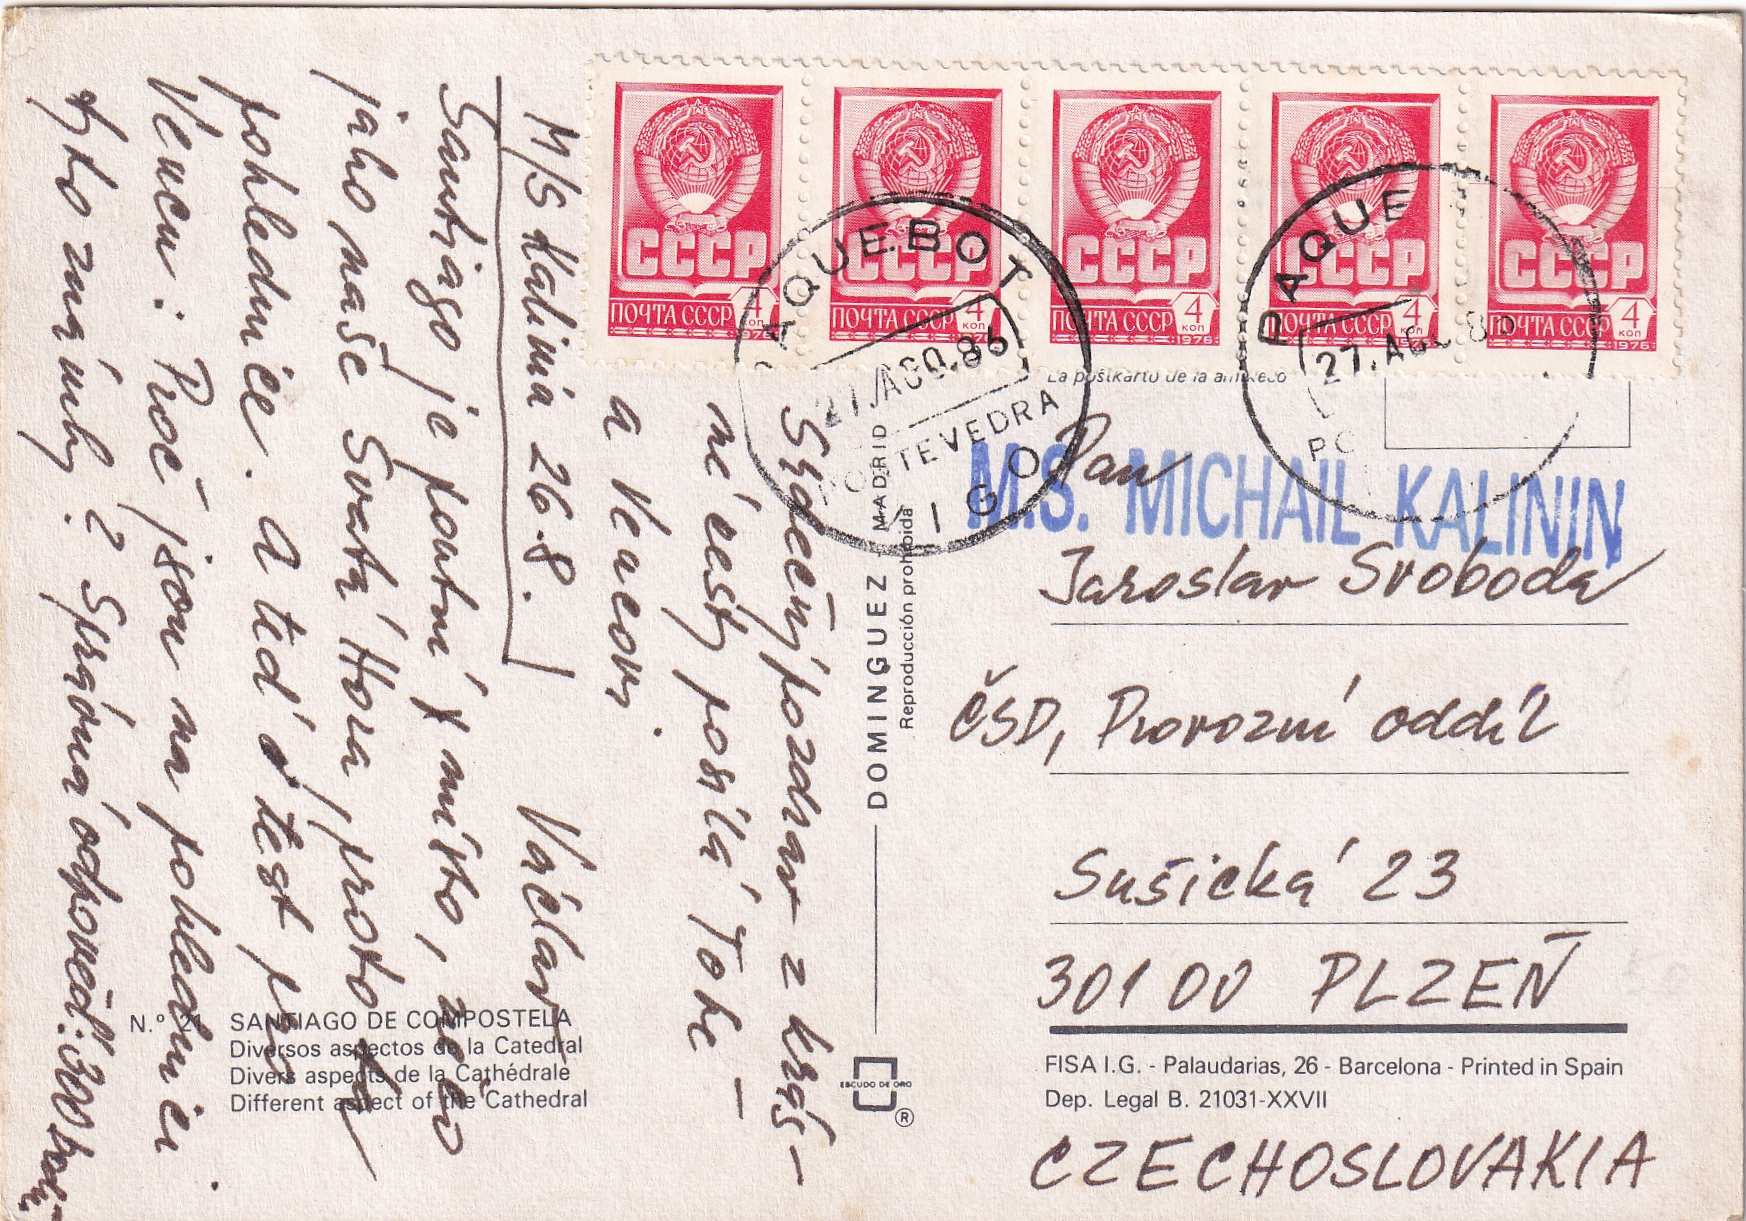 M/S Kalinin 26.8.
Santiago je poutní místo, něco
jako naše Svatá Hora, proto ta
pohlednice. A teď a test pro
Vencu: Proč jsou na pohlednici
tyto známky? Správná odpověď: 300 bodů
Srdečný pozdrav z krás-
né cesty posílá Tobě –
a Vencovi
Václav
N.º 21 SANTIAGO DE COMPOSTELA
Diversos aspectos de la Catedral
Divers aspects de la Cathédrale
Different aspect of the Cathedral
DOMINGUEZ MADRID
Reproducción prohibida
ESCUDO DE ORO
®
СССР
ПОЧТА СССР 4 КОП
1976
СССР
ПОЧТА СССР 4 КОП
СССР
ПОЧТА СССР 4 КОП
1976
СССР
ПОЧТА СССР 4 КОП
СССР
ПОЧТА СССР 4 КОП
1976
PAQUEBOT
27.AGO.86
PONTEVEDRA
VIGO
PAQUE
27.AGO 86
PO
La poŝtkarto de la amikeco
M.S. MICHAIL KALININ
Pan
Jaroslav Svoboda
ČSD, Provozní oddíl
Sušická 23
301 00 PLZEŇ
FISA I.G. - Palaudarias, 26 - Barcelona - Printed in Spain
Dep. Legal B. 21031-XXVII
CZECHOSLOVAKIA